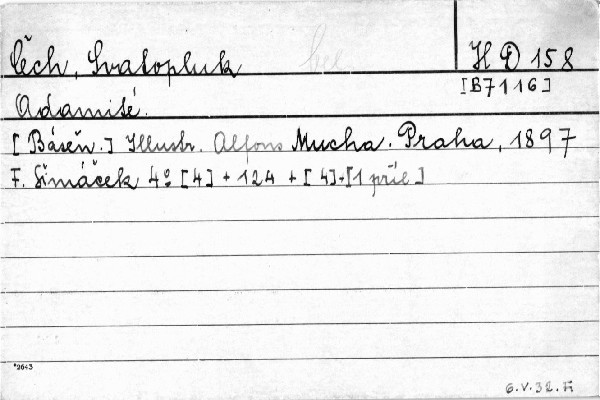 Čech, Svatopluk H D 158
[B7116]
Adamité.
[Báseň.] Illustr. Alfons Mucha. Praha, 1897
F. Šimáček 4º [4] + 124 + [4]+[1 příl]
*2643
6.V.32.